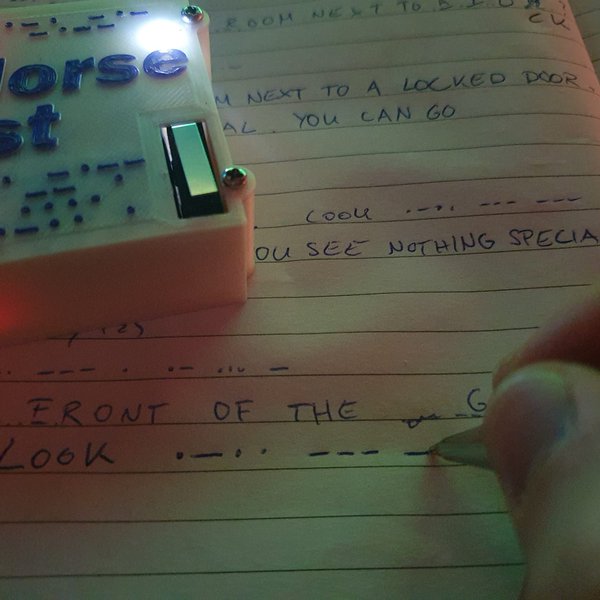 orse
st
ROOM NEXT TO
M NEXT TO A LOCKED DOOR.
AL. YOU CAN GO
LOOK .-.. --- ---
OU SEE NOTHING SPECIA
--- . .- ...- -
FRONT OF THE G
LOOK .-.. --- -